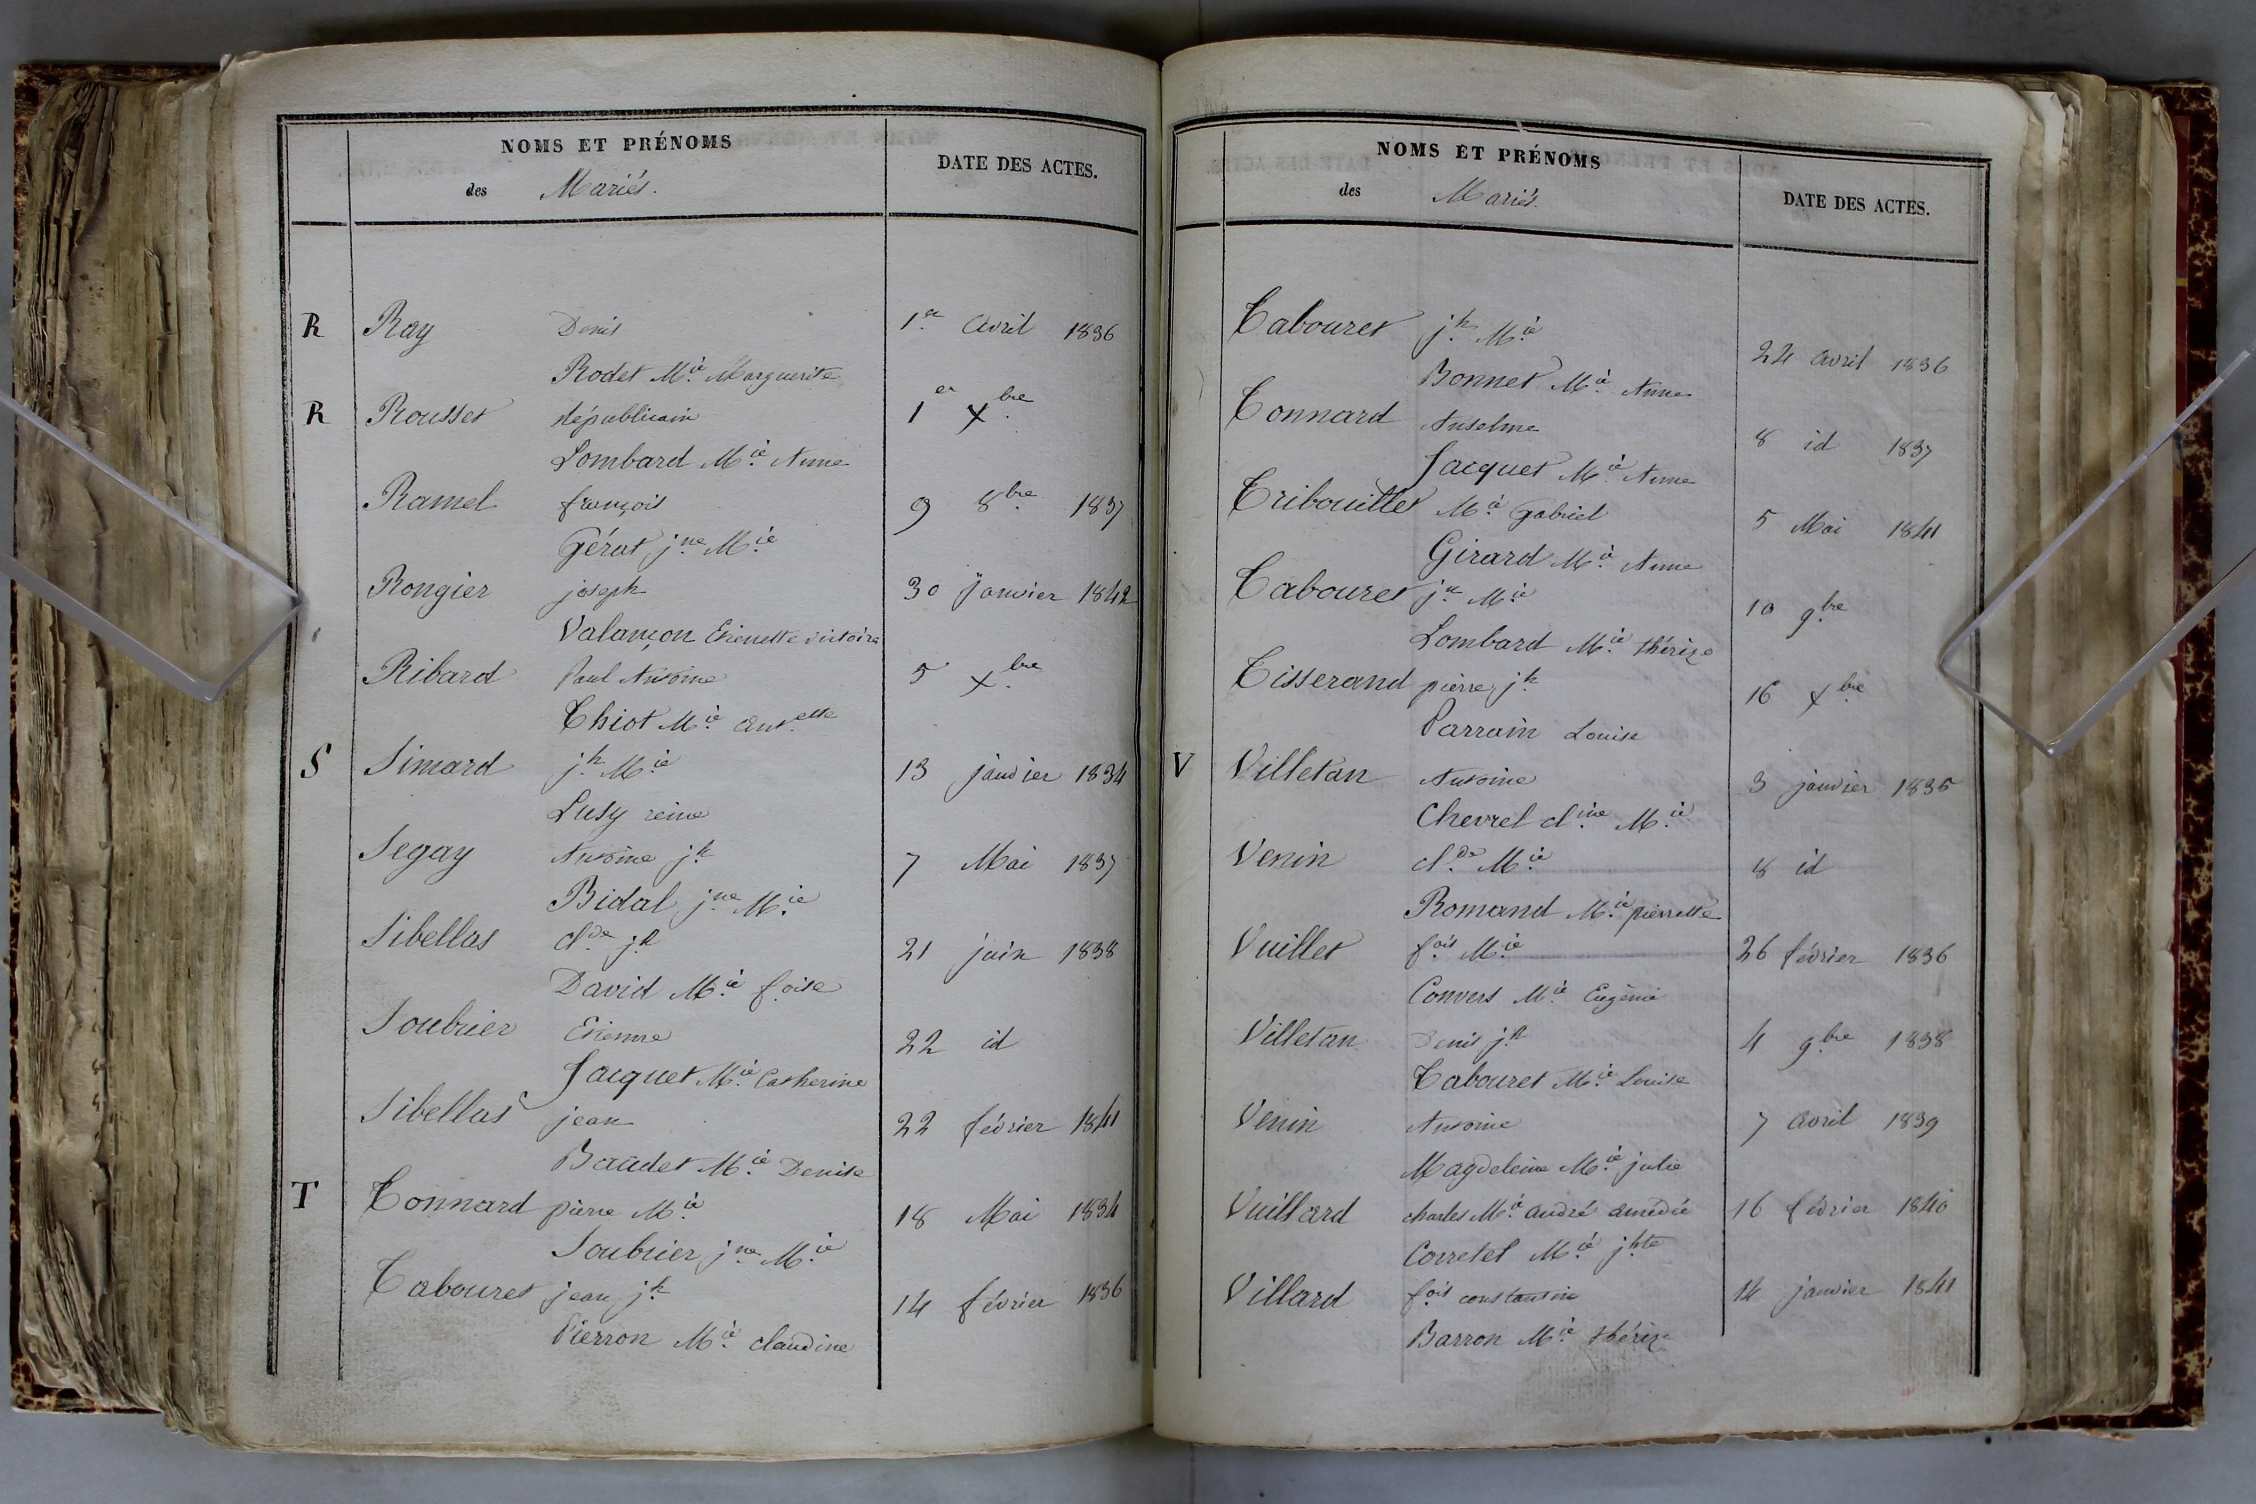 NOMS ET PRÉNOMS
des Mariés.
DATE DES ACTES.
R Ray Denis 1er avril 1836
Rodet Mie Marguerite
R Rousset républicain 1er Xbre
Lombard Mie Anne
Ramel françois 9 8bre 1837
Gérat jne Mie
Rongier joseph 30 janvier 1842
Valançon Etienette victoire
Ribard Paul Antoine 5 Xbre
Thiot Mie antette
S Simard jh Mie 13 janvier 1834
Lusy reine
Segay Antoine jh 7 Mai 1837
Bidal jne Mie
Sibellas clde jh 21 juin 1838
David Mie foise
Soubrier Etienne 22 id
Jacquet Mie Catherine
Sibellas jean 22 février 1841
Baudet Mie Denise
T Tonnard pierre Mie 18 Mai 1834
Soubrier jne Mie
Tabouret jean jh 14 février 1836
Pierron Mie claudine
NOMS ET PRÉNOMS
des Mariés.
DATE DES ACTES.
Tabouret jh Mie 24 avril 1836
Bonnet Mie Anne
Tonnard Anselme 8 id 1837
Jacquet Mie Anne
Tribouillet Mie Gabriel 5 Mai 1841
Girard Mie Anne
Tabouret jh Mie 10 9bre
Lombard Mie thérèze
Tisserand pierre jh 16 Xbre
Parrain Louise
V Villetan Antoine 3 janvier 1835
Chevrel cline Mie
Venin clde Mie 8 id
Romand Mie pierrette
Vuillet fois Mie 26 février 1836
Convers Mie Eugénie
Villetan Denis jh 4 9bre 1838
Tabouret Mie Louise
Venin Antoine 7 avril 1839
Magdeleine Mie julie
Vuillard charles Mie andré amédée 16 février 1840
Corretel Mie jhte
Villard fois constantin 14 janvier 1841
Barron Mie thérèze